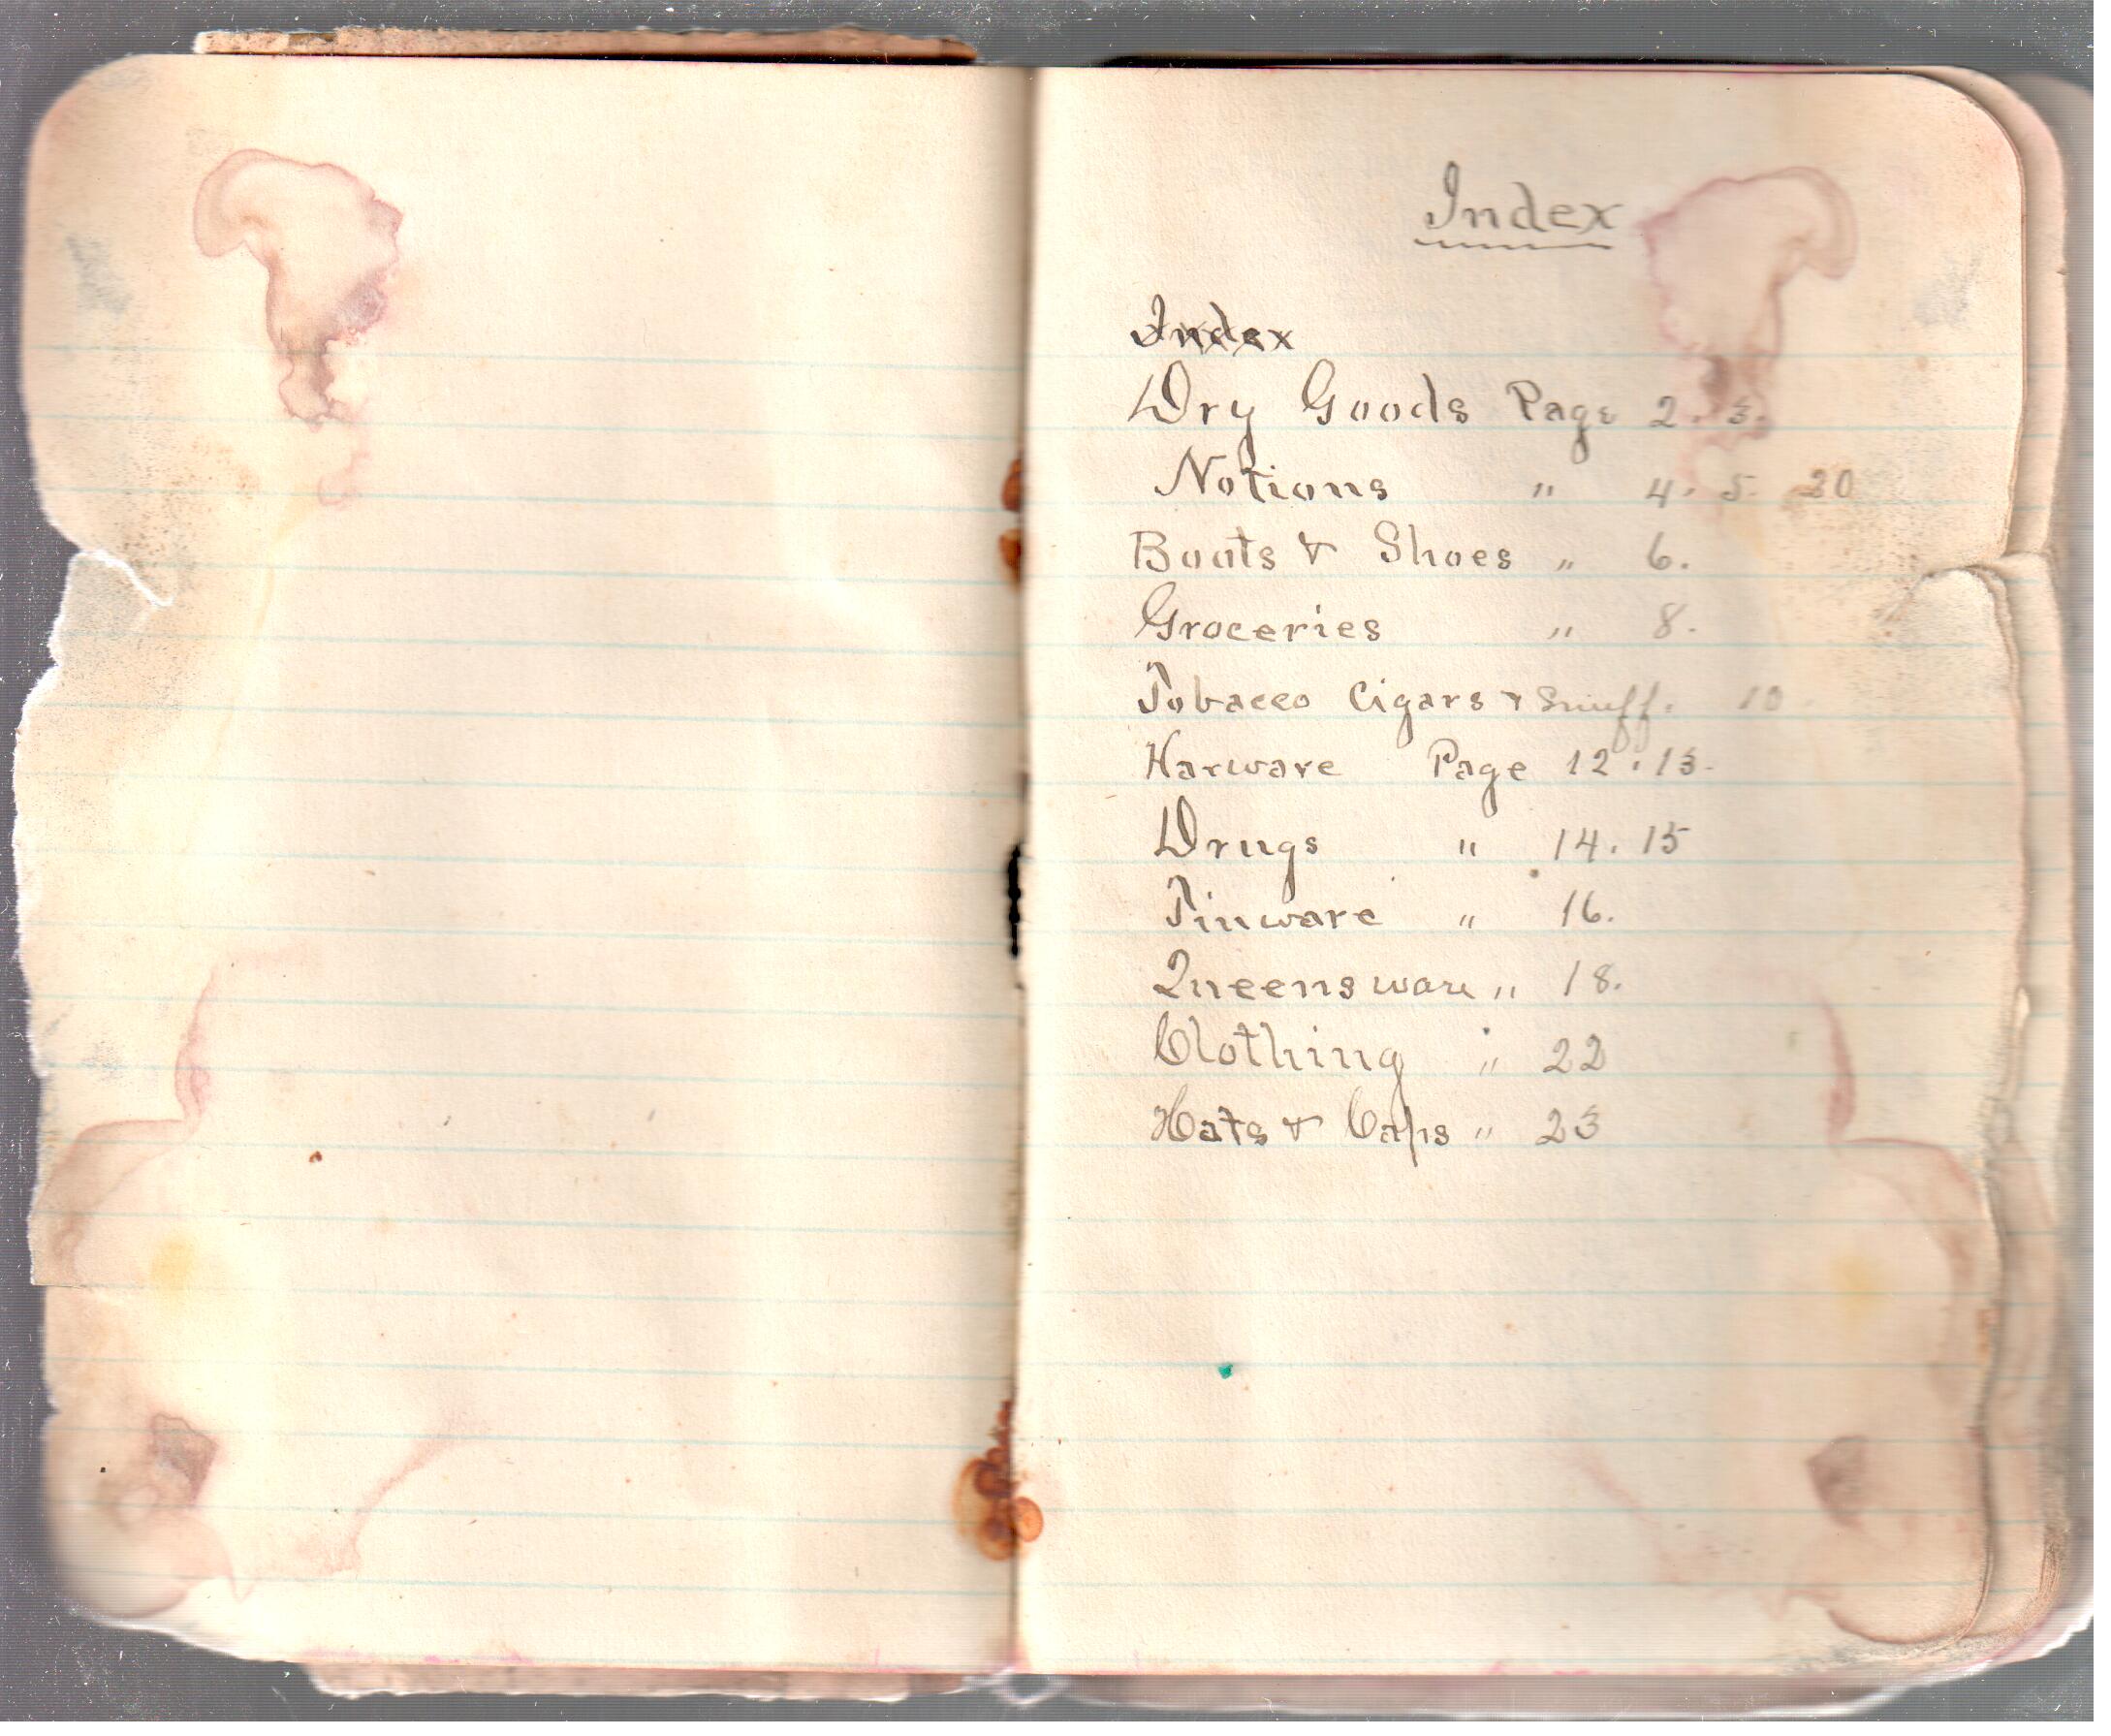 Index
Index
Dry Goods Page 2. 3.
Notions " 4. 5. 20
Boots & Shoes " 6.
Groceries " 8.
Tobacco Cigars & Snuff. 10
Harware Page 12. 13.
Drugs " 14. 15
Tinware " 16.
Queensware " 18.
Clothing " 22
Hats & Caps " 23